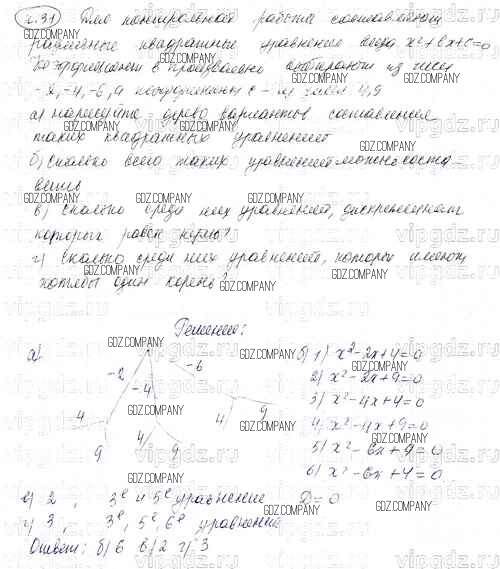 2.31 Для контрольной работы составляют
различные квадратные уравнения вида x²+bx+c=0
Коэффициент b произвольно выбирают из чисел
-2, -4, -6, а коэффициент c - из чисел 4, 9
а) нарисуйте дерево вариантов составления
таких квадратных уравнений
б) сколько всего таких уравнений можно соста
вить
в) сколько среди них уравнений, дискриминант
которых равен нулю?
г) сколько среди них уравнений, которые имеют
хотя бы один корень?
Решение:
а)
-2
-4
-6
4
9
4
9
4
9
б) 1) x²-2x+4=0
2) x²-2x+9=0
3) x²-4x+4=0
4) x²-4x+9=0
5) x²-6x+9=0
6) x²-6x+4=0
в) 2, 3е и 5е уравнение D=0
г) 3, 3е, 5е 6е уравнение
Ответ: б) 6 в) 2 г) 3
GDZ.COMPANY
vipgdz.ru